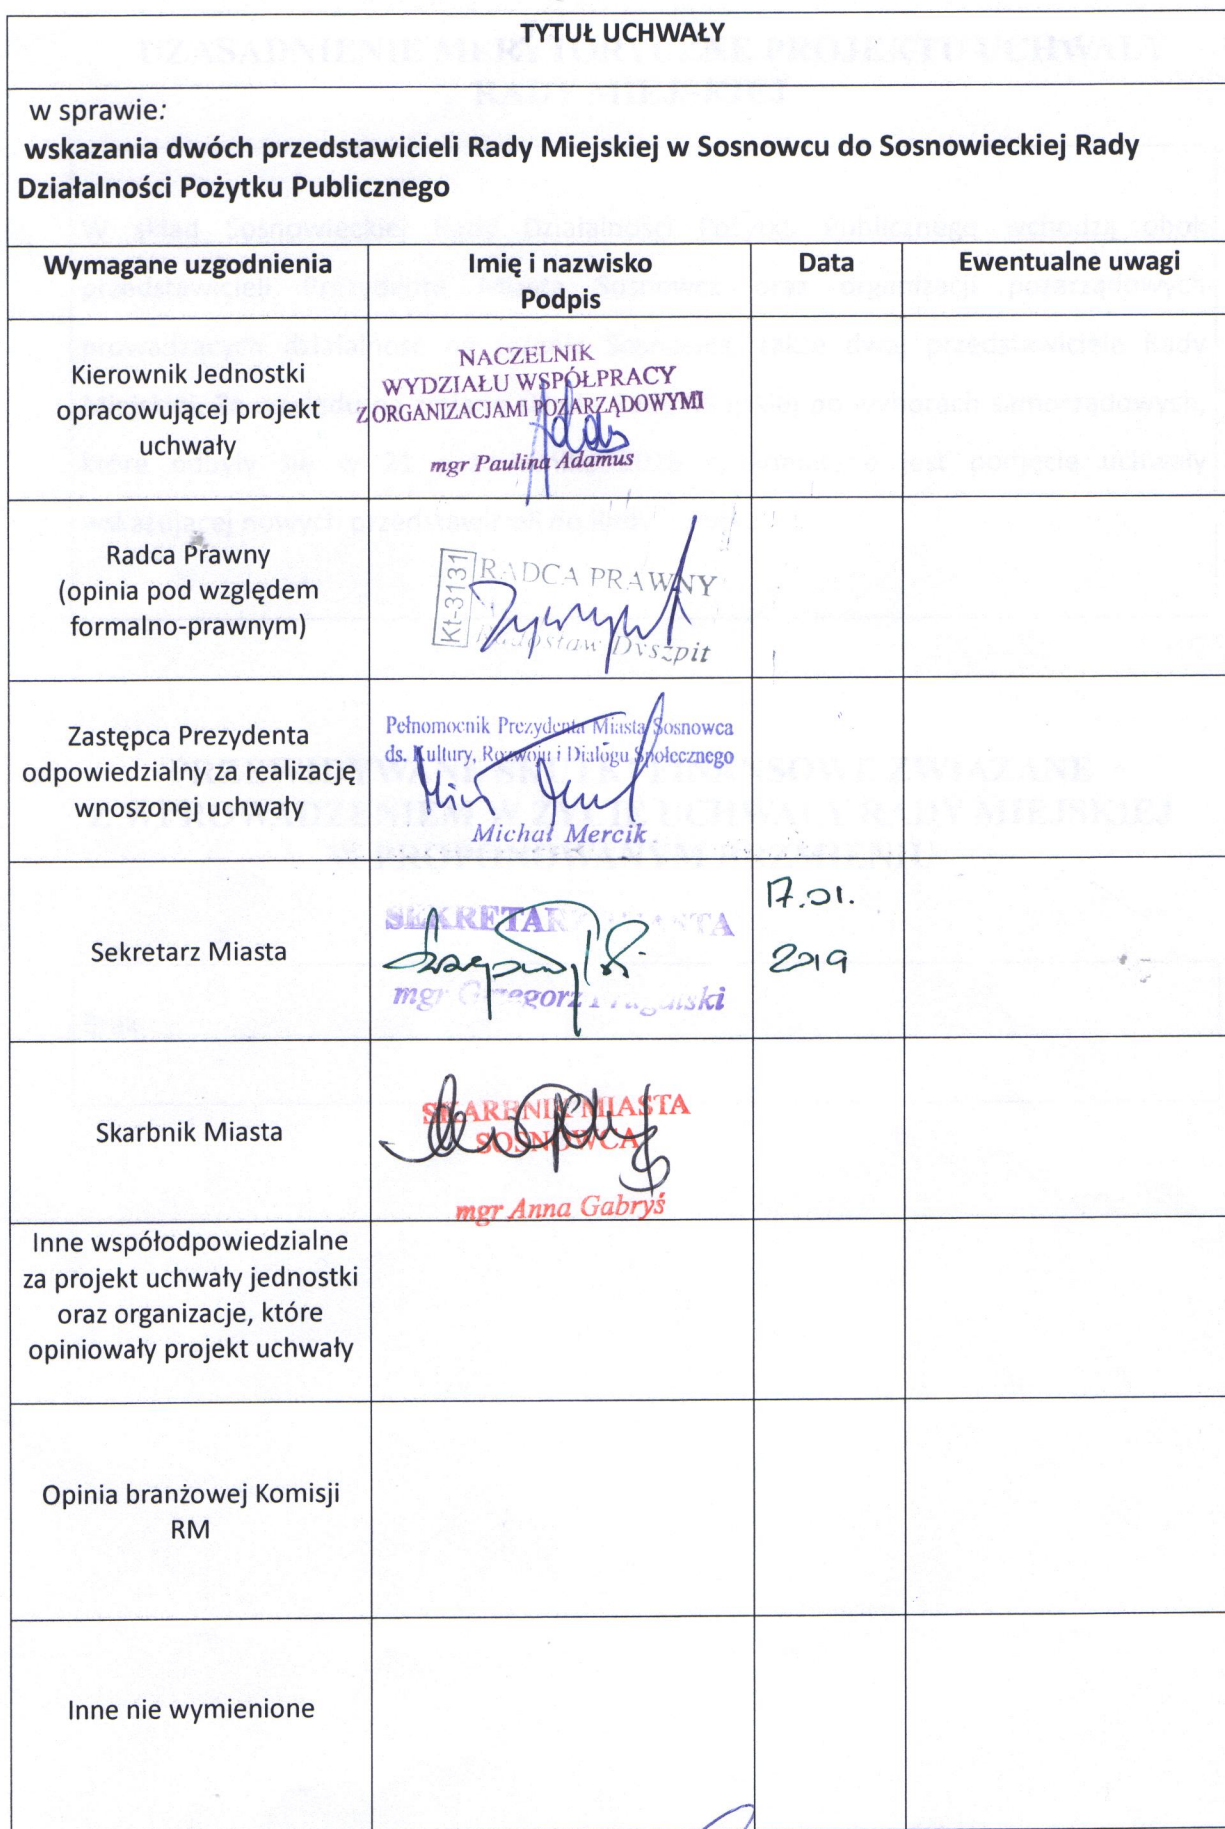 TYTUŁ UCHWAŁY
w sprawie:
wskazania dwóch przedstawicieli Rady Miejskiej w Sosnowcu do Sosnowieckiej Rady
Działalności Pożytku Publicznego
Wymagane uzgodnienia
Imię i nazwisko
Podpis
Data
Ewentualne uwagi
Kierownik Jednostki
opracowującej projekt
uchwały
NACZELNIK
WYDZIAŁU WSPÓŁPRACY
Z ORGANIZACJAMI POZARZĄDOWYMI
mgr Paulina Adamus
Radca Prawny
(opinia pod względem
formalno-prawnym)
Kt-3131
RADCA PRAWNY
Dyszpit
Zastępca Prezydenta
odpowiedzialny za realizację
wnoszonej uchwały
Pełnomocnik Prezydenta Miasta Sosnowca
ds. Kultury, Rozwoju i Dialogu Społecznego
Michał Mercik
Sekretarz Miasta
SEKRETARZ MIASTA
mgr Grzegorz
17.01.
2019
Skarbnik Miasta
SKARBNIK MIASTA
SOSNOWCA
mgr Anna Gabryś
Inne współodpowiedzialne
za projekt uchwały jednostki
oraz organizacje, które
opiniowały projekt uchwały
Opinia branżowej Komisji
RM
Inne nie wymienione